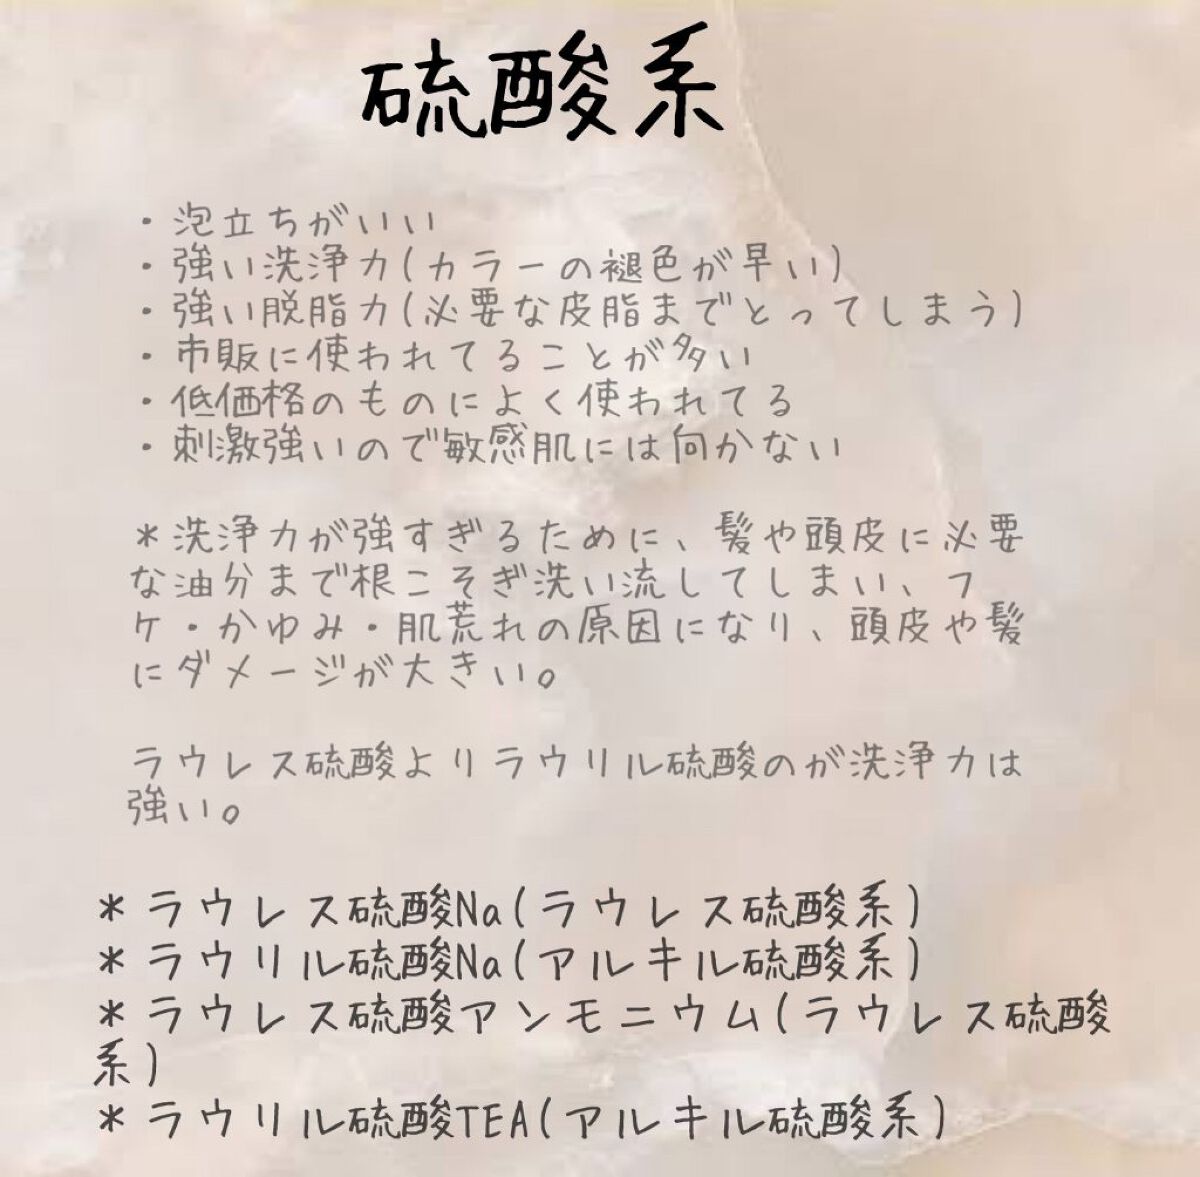 硫酸系
・泡立ちがいい
・強い洗浄力(カラーの褪色が早い)
・強い脱脂力(必要な皮脂までとってしまう)
・市販に使われてることが多い
・低価格のものによく使われてる
・刺激強いので敏感肌には向かない
＊洗浄力が強すぎるために、髪や頭皮に必要
な油分まで根こそぎ洗い流してしまい、フ
ケ・かゆみ・肌荒れの原因になり、頭皮や髪
にダメージが大きい。
ラウレス硫酸よりラウリル硫酸のが洗浄力は
強い。
＊ラウレス硫酸Na(ラウレス硫酸系)
＊ラウリル硫酸Na(アルキル硫酸系)
＊ラウレス硫酸アンモニウム(ラウレス硫酸
系)
＊ラウリル硫酸TEA(アルキル硫酸系)